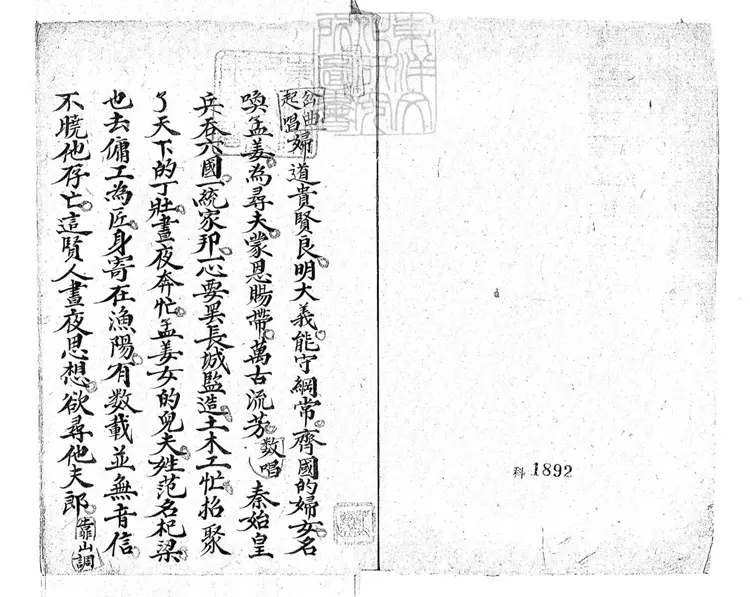 岔曲
起唱
婦道貴賢良明大義能守綱常齊國的婦女名
喚孟姜為尋夫蒙恩賜帶萬古流芳
数唱
秦始皇
兵吞六國一統家邦一心要築長城監造土木工忙招聚
了天下的丁壯晝夜奔忙孟姜女的兒夫姓范名杞梁
也去傭工為匠身寄在漁陽有数載並無音信
不曉他存亡這賢人晝夜思想欲尋他夫郎
靠山調
東洋文
化研究
所圖書
科 1892